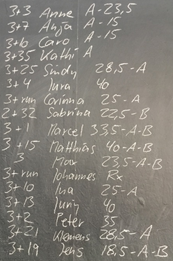 3+3 Anne A-23,5
3+7 Anja A-15
3+6 Caro A-15
3+35 Kathi A
3+25 Sindy 28,5-A
3+4 Jura 40
3+run Corinna 25-A
2+32 Sabrina 22,5-B
3+1 Marcel 33,5-A-B
3+15 Matthias 40-A-B
3 Max 23,5-A-B
3+run Johannes Rx
3+10 Ina 25-A
3+13 Jury 40
3+2 Peter 35
3+21 Klemens 28,5-A
3+19 Jens 18,5-A-B